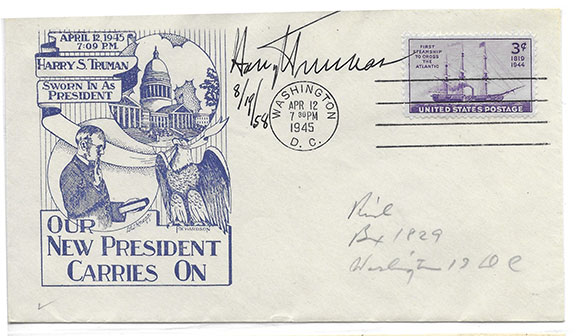 APRIL 12, 1945
7:09 P.M.
HARRY S. TRUMAN
SWORN IN AS
PRESIDENT
OUR
NEW PRESIDENT
CARRIES ON
Harry Truman
8/19/58
WASHINGTON
APR 12
7 30 PM
1945
D. C.
FIRST
STEAMSHIP
TO CROSS
THE
ATLANTIC
3¢
1819
1944
UNITED STATES POSTAGE
Box 1829
Washington 13 D C